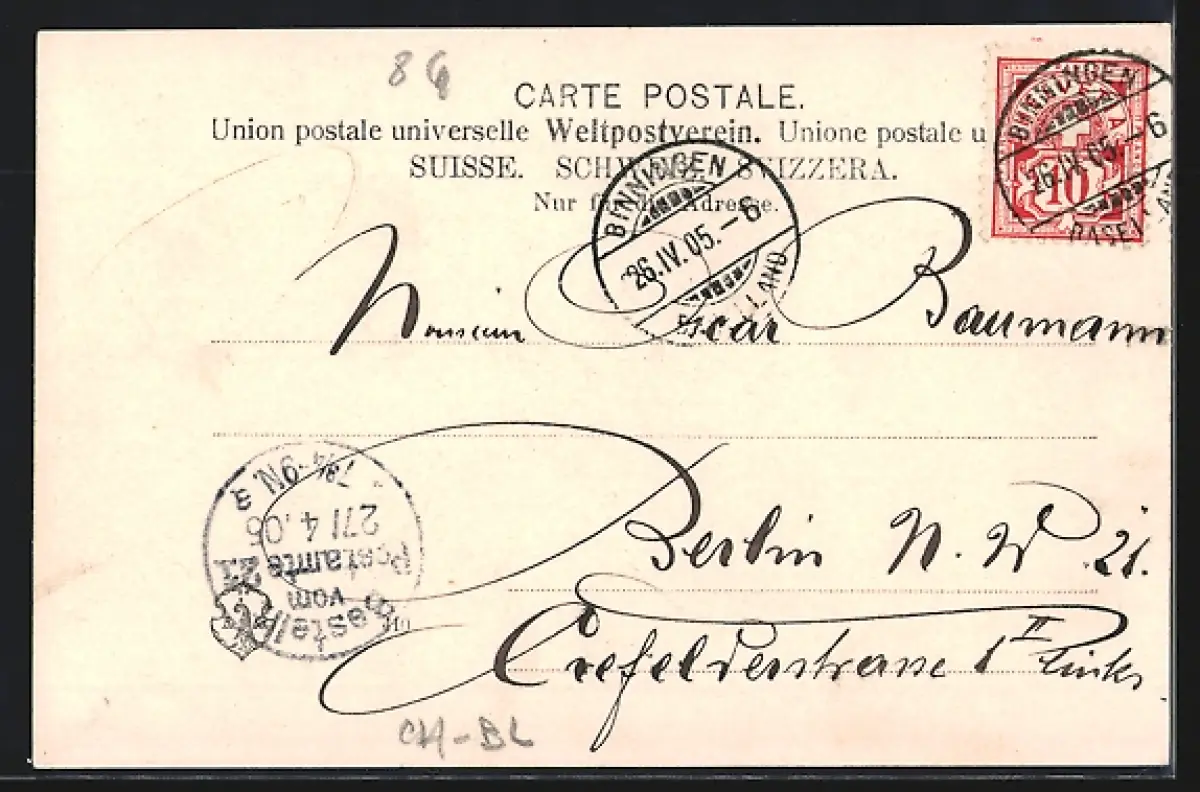 8G
CARTE POSTALE.
Union postale universelle Weltpostverein. Unione postale u
SUISSE. SCHWEIZ. SVIZZERA.
Nur für die Adresse.
BINNINGEN
26.IV.05.-6
BASELLAND
10
BINNINGEN
26.IV.05.-6
BASELLAND
Monsieur Oscar Baumann
Berlin N. W 21.
Crefelderstrasse 1 II links
Bestellt
vom
Postamte
21
27/4.05
7¾-9N.
CH-BL